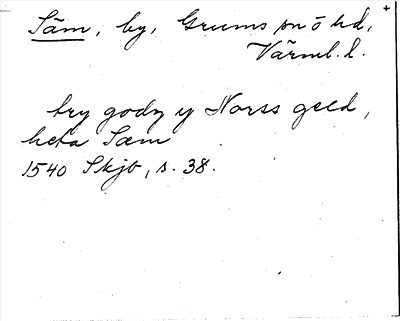 Säm, by, Grums sn o hd,
Värml. l.
try godz y Norss geld,
heta Sæm
1540 Skjb, s. 38.